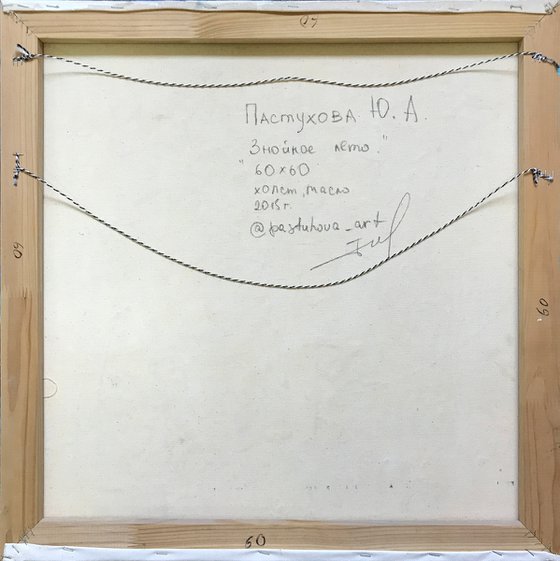 60
Пастухова Ю. А.
"Знойное лето."
60×60
холст, масло
@pastuhova_art
60
60
60